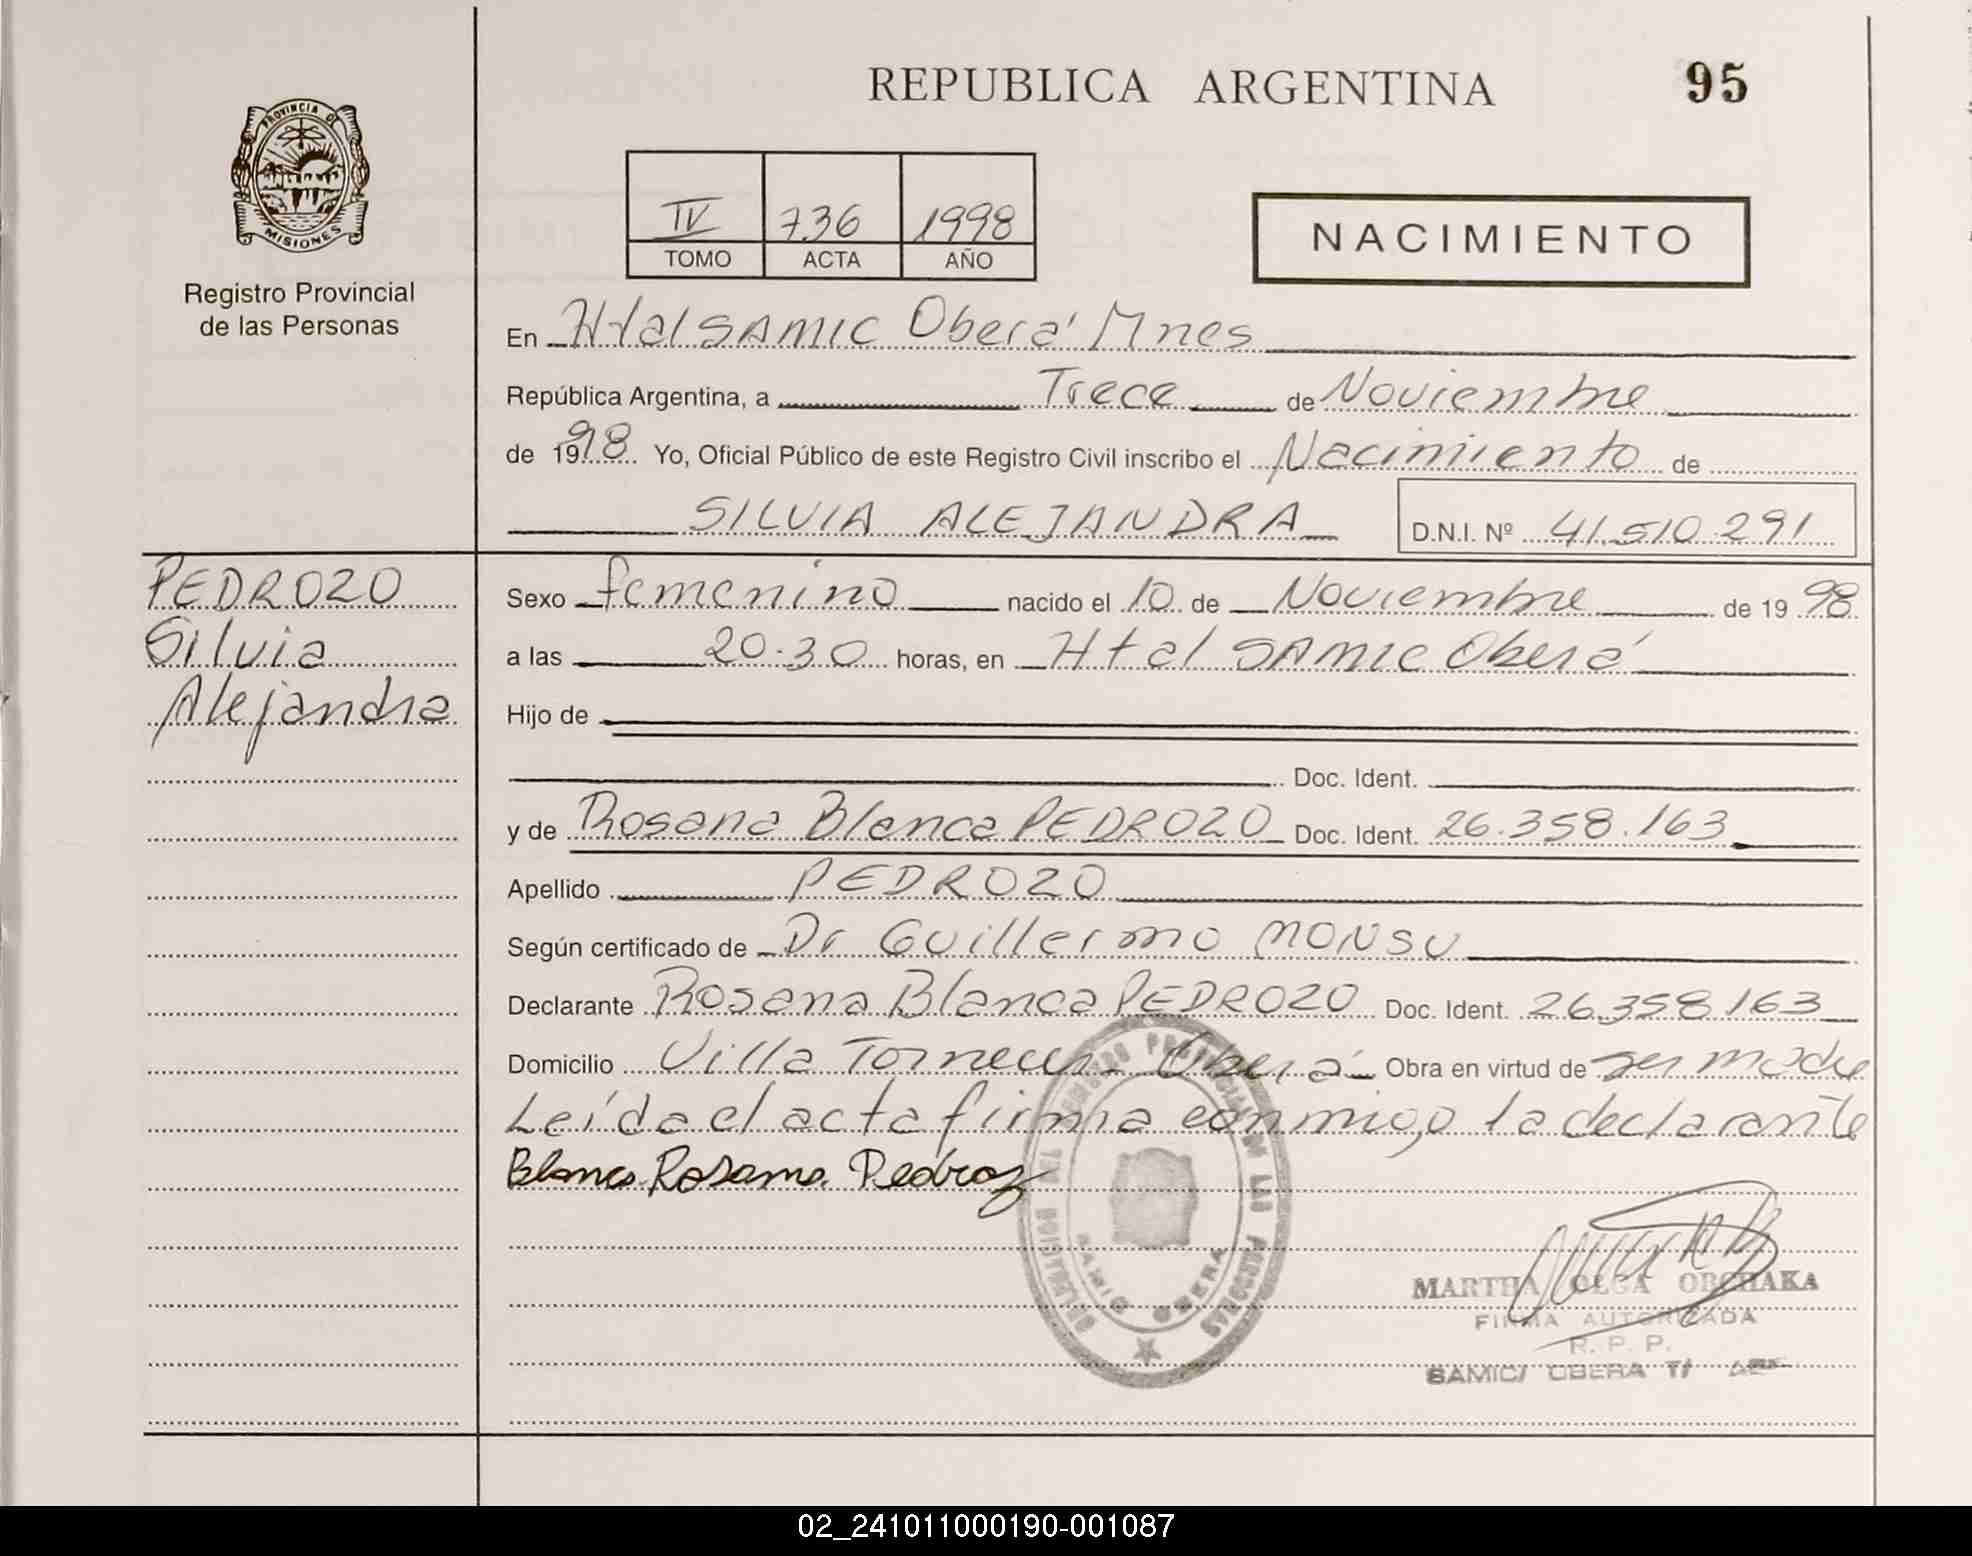 REPUBLICA ARGENTINA 95
PROVINCIA DE
MISIONES
Registro Provincial
de las Personas
IV 736 1998
TOMO ACTA AÑO
NACIMIENTO
En Htal SAMIC Oberá Mnes
República Argentina, a Trece de Noviembre
de 1998 Yo, Oficial Público de este Registro Civil inscribo el Nacimiento de
SILVIA ALEJANDRA D.N.I. Nº 41.510.291
PEDROZO
Silvia
Alejandra
Sexo femenino nacido el 10 de Noviembre de 1998
a las 20.30 horas, en Htal SAMIC Oberá
Hijo de
Doc. Ident.
y de Rosana Blanca PEDROZO Doc. Ident. 26.358.163
Apellido PEDROZO
Según certificado de Dr Guillermo MONSU
Declarante Rosana Blanca PEDROZO Doc. Ident. 26.358.163
Domicilio Villa Oberá Obra en virtud de ser madre
Leída el acta firma conmigo la declarante
Blanca Rosana Pedrozo
MARTHA OLGA ORCHAKA
FIRMA AUTORIZADA
R. P. P.
SAMIC/ OBERA
SAMIC OBERA
02_241011000190-001087